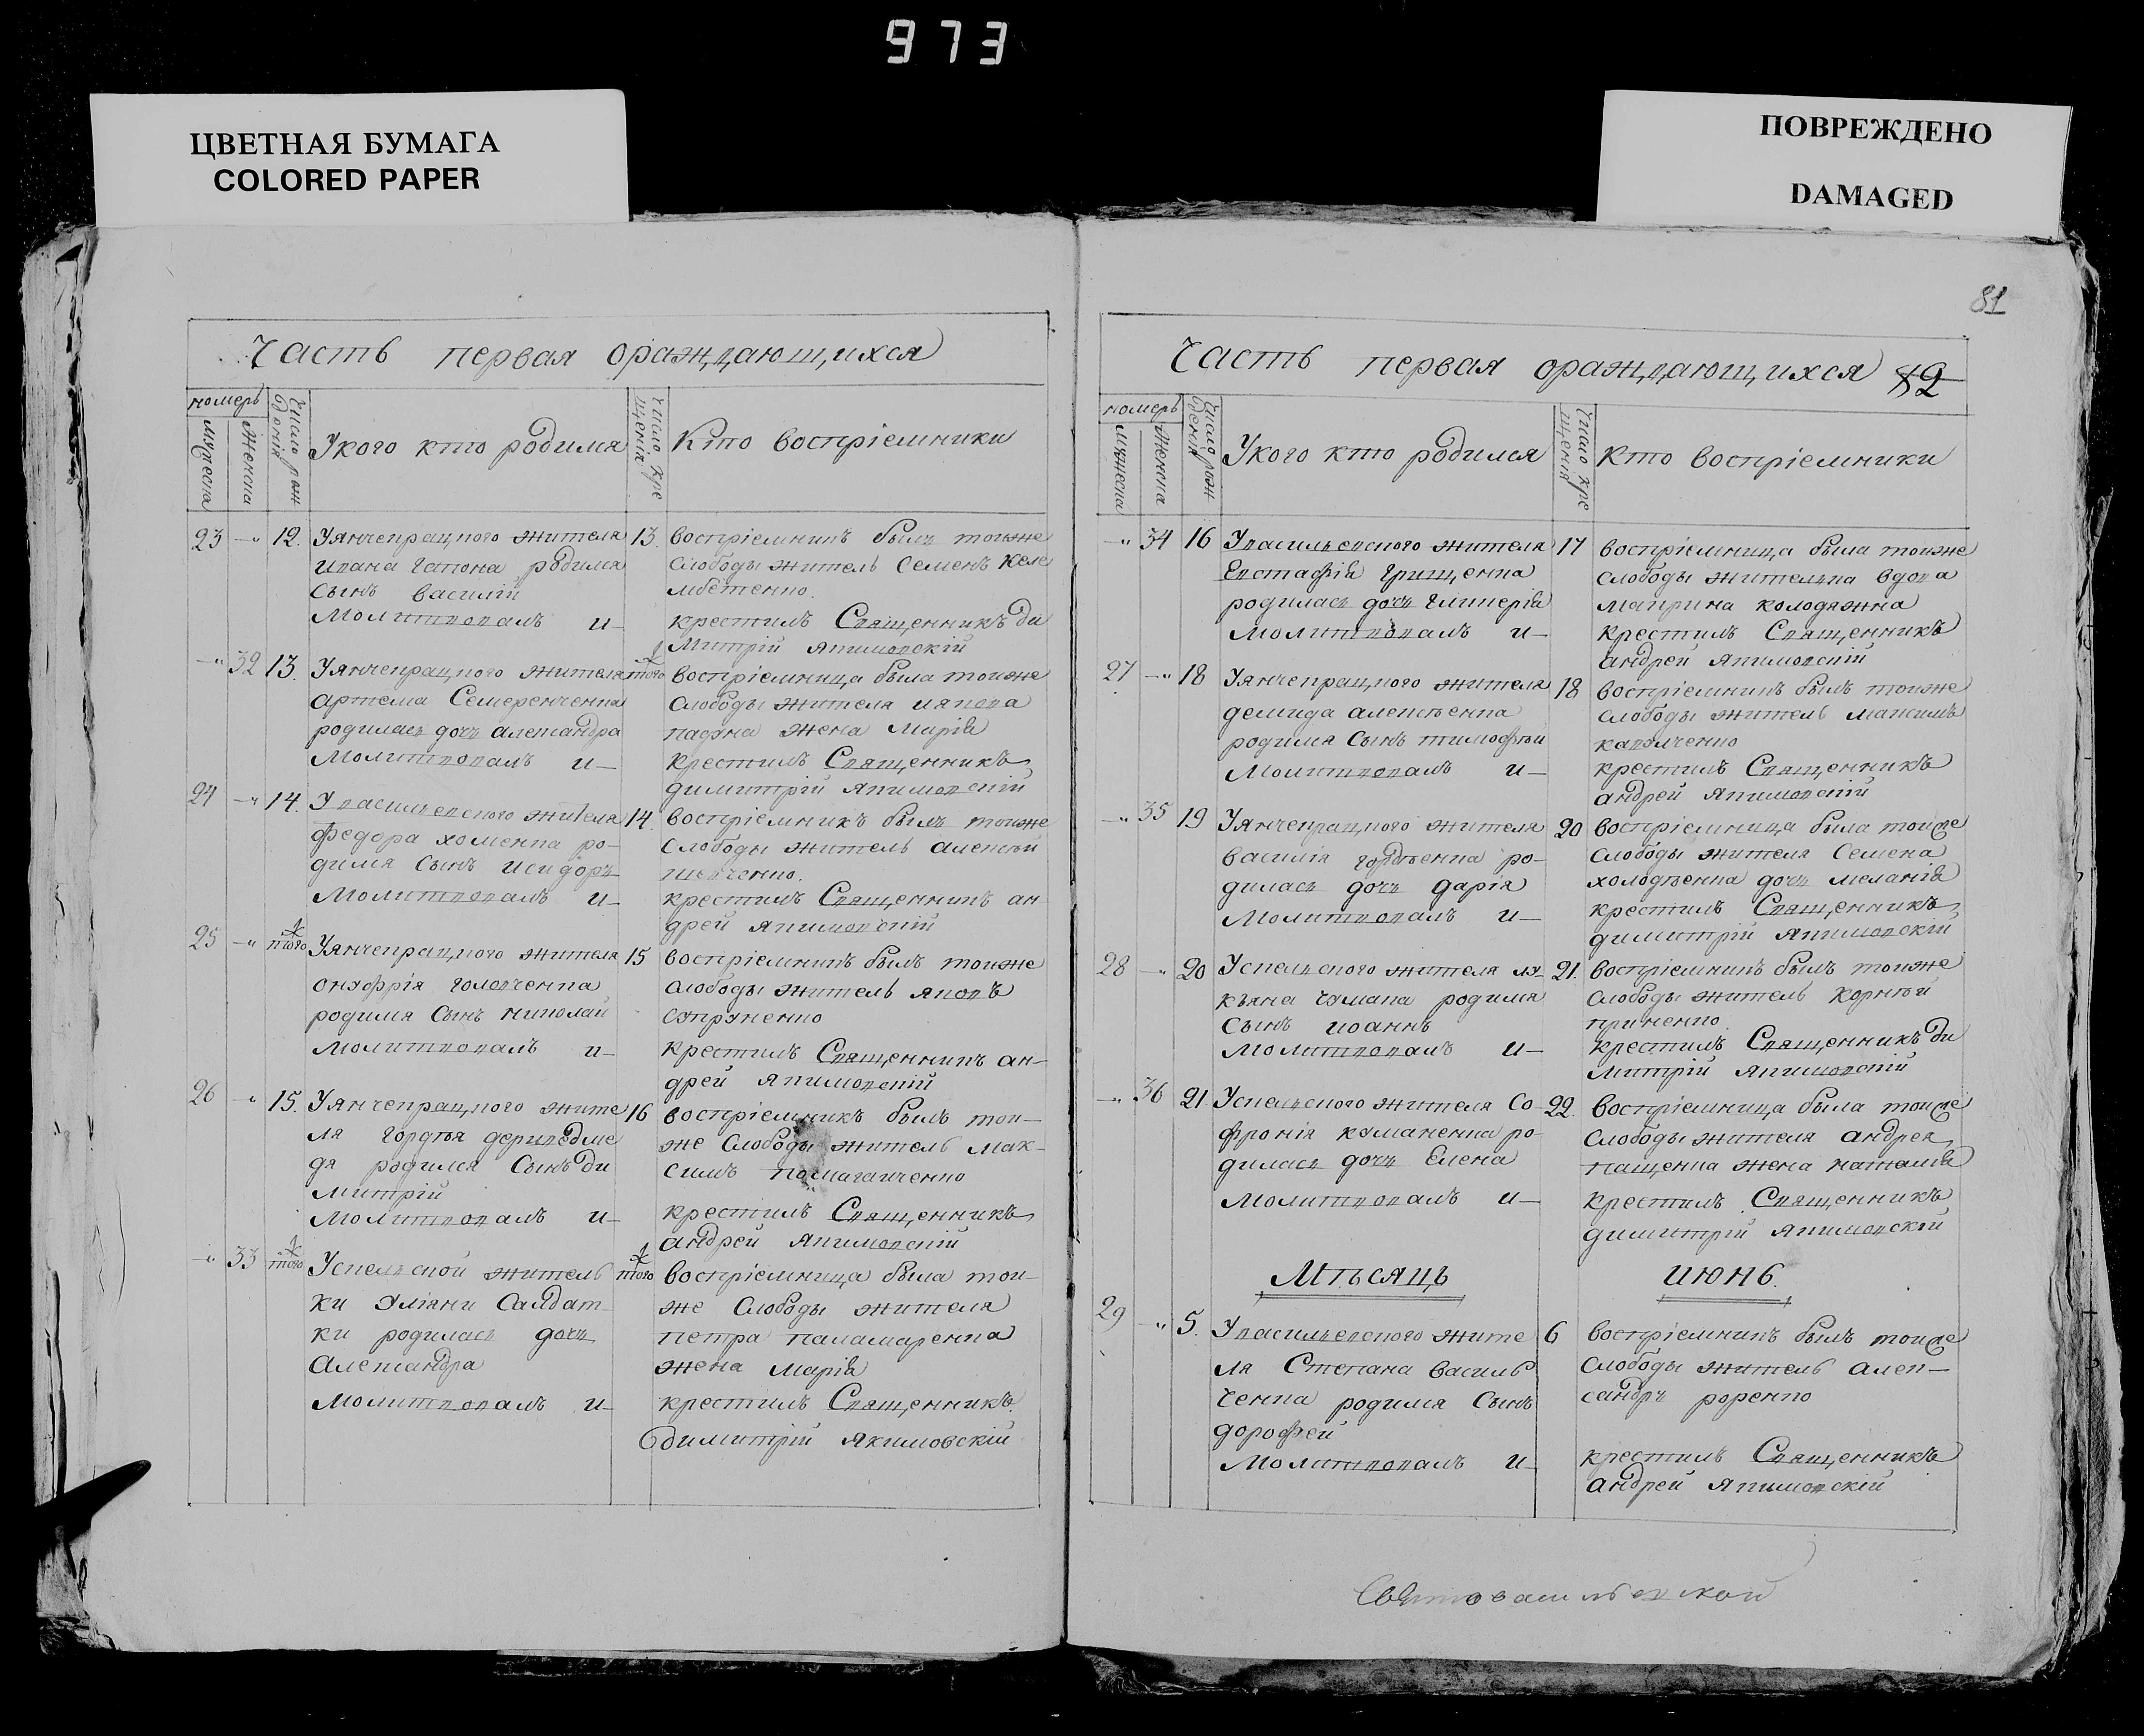 973
ЦВЕТНАЯ БУМАГА
COLORED PAPER
ПОВРЕЖДЕНО
DAMAGED
Часть первая ораждающихся
номеръ
мужеска
женска
Число рож
денія
Укого кто родился
Число кре
щенія
Кто воспріемники
23 12. Уянчекрацкого жителя
ивана гапона родился
сынъ василій
молитвовалъ и
13. воспріемникъ былъ тоиже
слободы житель Семенъ келе
мбетенко.
крестилъ Священникъ ди
митрій якимовскій
32 13. Уянчекрацкого жителя
артема Семеренченка
родилась дочь александра
молитвовалъ и
того воспріемница была тоиже
слободы жителя иякова
жена марія
крестилъ Священникъ
димитрій якимовскій
24 14. Увасильевского жителя
федора хоменка ро-
дился сынъ исидоръ
молитвовалъ и
14. воспріемникъ былъ тоиже
слободы житель алексѣй
шевченко.
крестилъ Священникъ ан
дрей якимовскій
25 того Уянчекрацкого жителя
онуфрія головченка
родился сынъ николай
молитвовалъ и
15 воспріемникъ былъ тоиже
слободы житель яковъ
супруненко
крестилъ Священникъ ан-
дрей якимовскій
26 15. Уянчекрацкого жите
ля гордѣя дериведме
дя родился сынъ ди
митрій
молитвовалъ и
16 воспріемникъ былъ той-
же слободы житель мак-
симъ
крестилъ Священникъ
андрей якимовскій
33 того Успелвской житель
ки уліяни салдат-
ки родилась дочь
александра
молитвовалъ и
того воспріемница была той-
же слободы жителя
петра паламаренка
жена марія
крестилъ Священникъ
димитрій якимовскій
81
Часть первая ораждающихся 82
номеръ
мужеска
женска
Число рож
денія
Укого кто родился
Число кре
щенія
Кто воспріемники
34 16 Увасильевского жителя
Евстафія грищенка
родилась дочь гликерія
молитвовалъ и
17 воспріемница была тоиже
слободы жителька вдова
маврина колодяжна
крестилъ Священникъ
андрей якимовскій
27 18 Уянчекрацкого жителя
демида алексѣенка
родился сынъ тимофѣй
молитвовалъ и
18 воспріемникъ былъ тоиже
слободы житель максимъ
крестилъ Священникъ
андрей якимовскій
35 19 Уянчекрацкого жителя
василія гордѣенка ро-
дилась дочь дарія
молитвовалъ и
20 воспріемница была тоиже
слободы жителя Семена
холодѣенка дочь меланія
крестилъ Священникъ
димитрій якимовскій
28 20 Успелвского жителя лу-
кьяна чумака родился
сынъ иоаннъ
молитвовалъ и
21. воспріемникъ былъ тоиже
слободы житель корнѣй
крестилъ Священникъ ди
митрій якимовскій
36 21 Успелвского жителя Со-
фронія куманенка ро-
дилась дочь Елена
молитвовалъ и
22. воспріемница была тоиже
слободы жителя андрея
пащенка жена наталія
крестилъ Священникъ
димитрій якимовскій
Мѣсяцъ июнь.
29 5. Увасильевского жите
ля Степана василь
ченка родился сынъ
дорофей
молитвовалъ и
6 воспріемникъ былъ тоиже
слободы житель алек-
сандръ
крестилъ Священникъ
андрей якимовскій